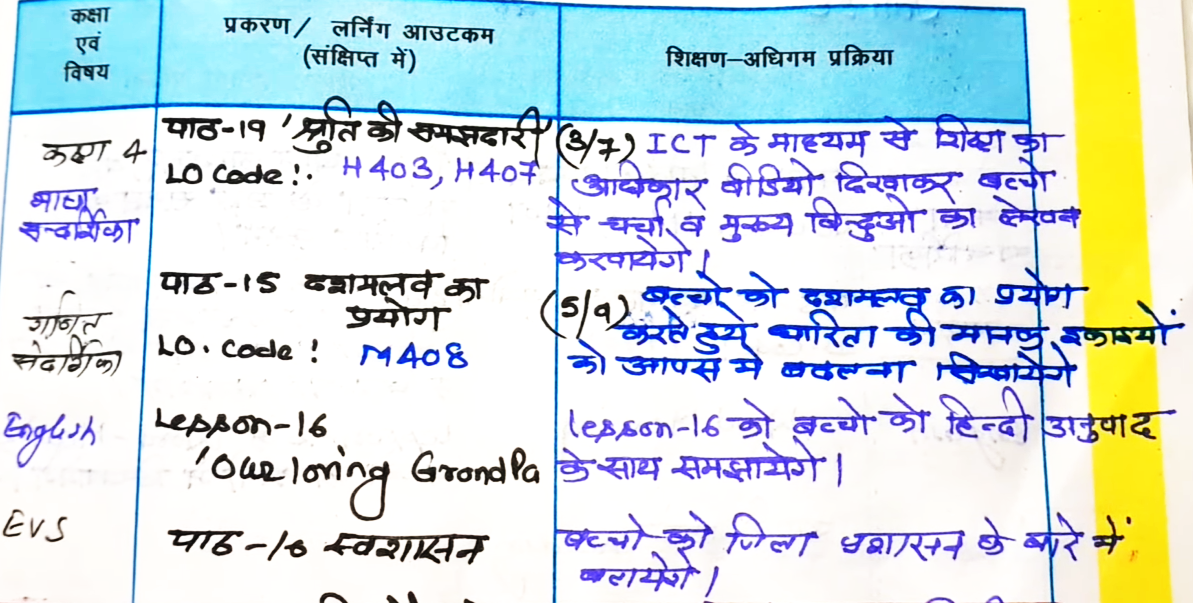 कक्षा
एवं
विषय
प्रकरण / लर्निंग आउटकम
(संक्षिप्त में)
शिक्षण–अधिगम प्रक्रिया
कक्षा 4
भाषा
सन्दर्शिका
पाठ-19 'श्रुति की समझदारी'
LO Code :. H403, H407
(3/7) ICT के माध्यम से शिक्षा का
अधिकार वीडियो दिखाकर बच्चो
से चर्चा व मुख्य बिन्दुओ का लेखन
करवायेगे।
गणित
संदर्शिका
पाठ-15 दशमलव का
प्रयोग
LO. Code : M408
(5/9) बच्चो को दशमलव का प्रयोग
करते हुये धारिता की मानक इकाइयों
को आपस मे बदलना सिखायेगे
English
Lesson-16
'Our loving GrandPa
lesson-16 को बच्चो को हिन्दी अनुवाद
के साथ समझायेगे।
EVS
पाठ-16 स्वशासन
बच्चो को जिला प्रशासन के बारे में
बतायेगे।